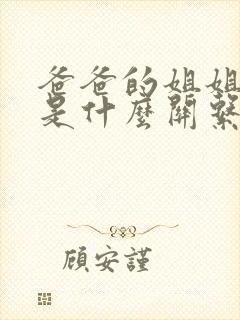 爸爸的姐姐
是什麼關繫
顧安謹